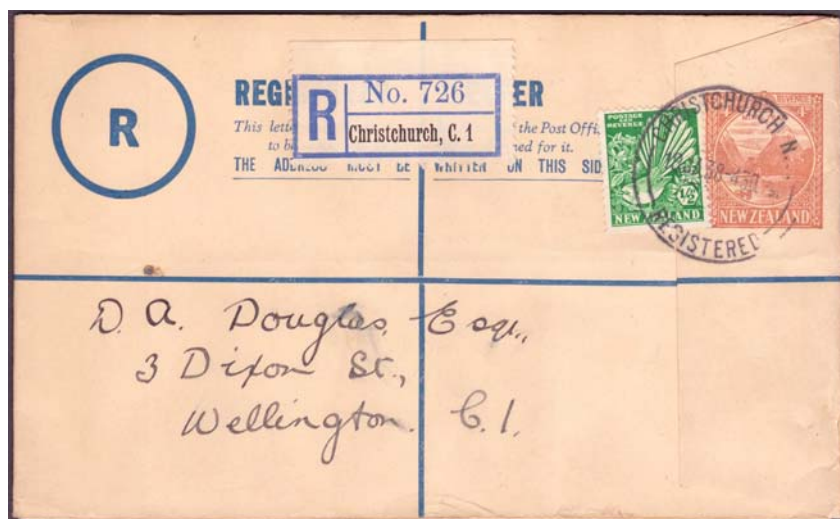 R
REG ER
This lette the Post Offi
to be ned for it.
THE ADDRESS MUST BE WRITTEN ON THIS SID
R No. 726
Christchurch, C. 1
POSTAGE
REVENUE
½D
NEW ZEALAND
NEW ZEALAND
CHRISTCHURCH N.
38-4 30
REGISTERED
D. A. Douglas, Esq.,
3 Dixon St.,
Wellington. C.1.